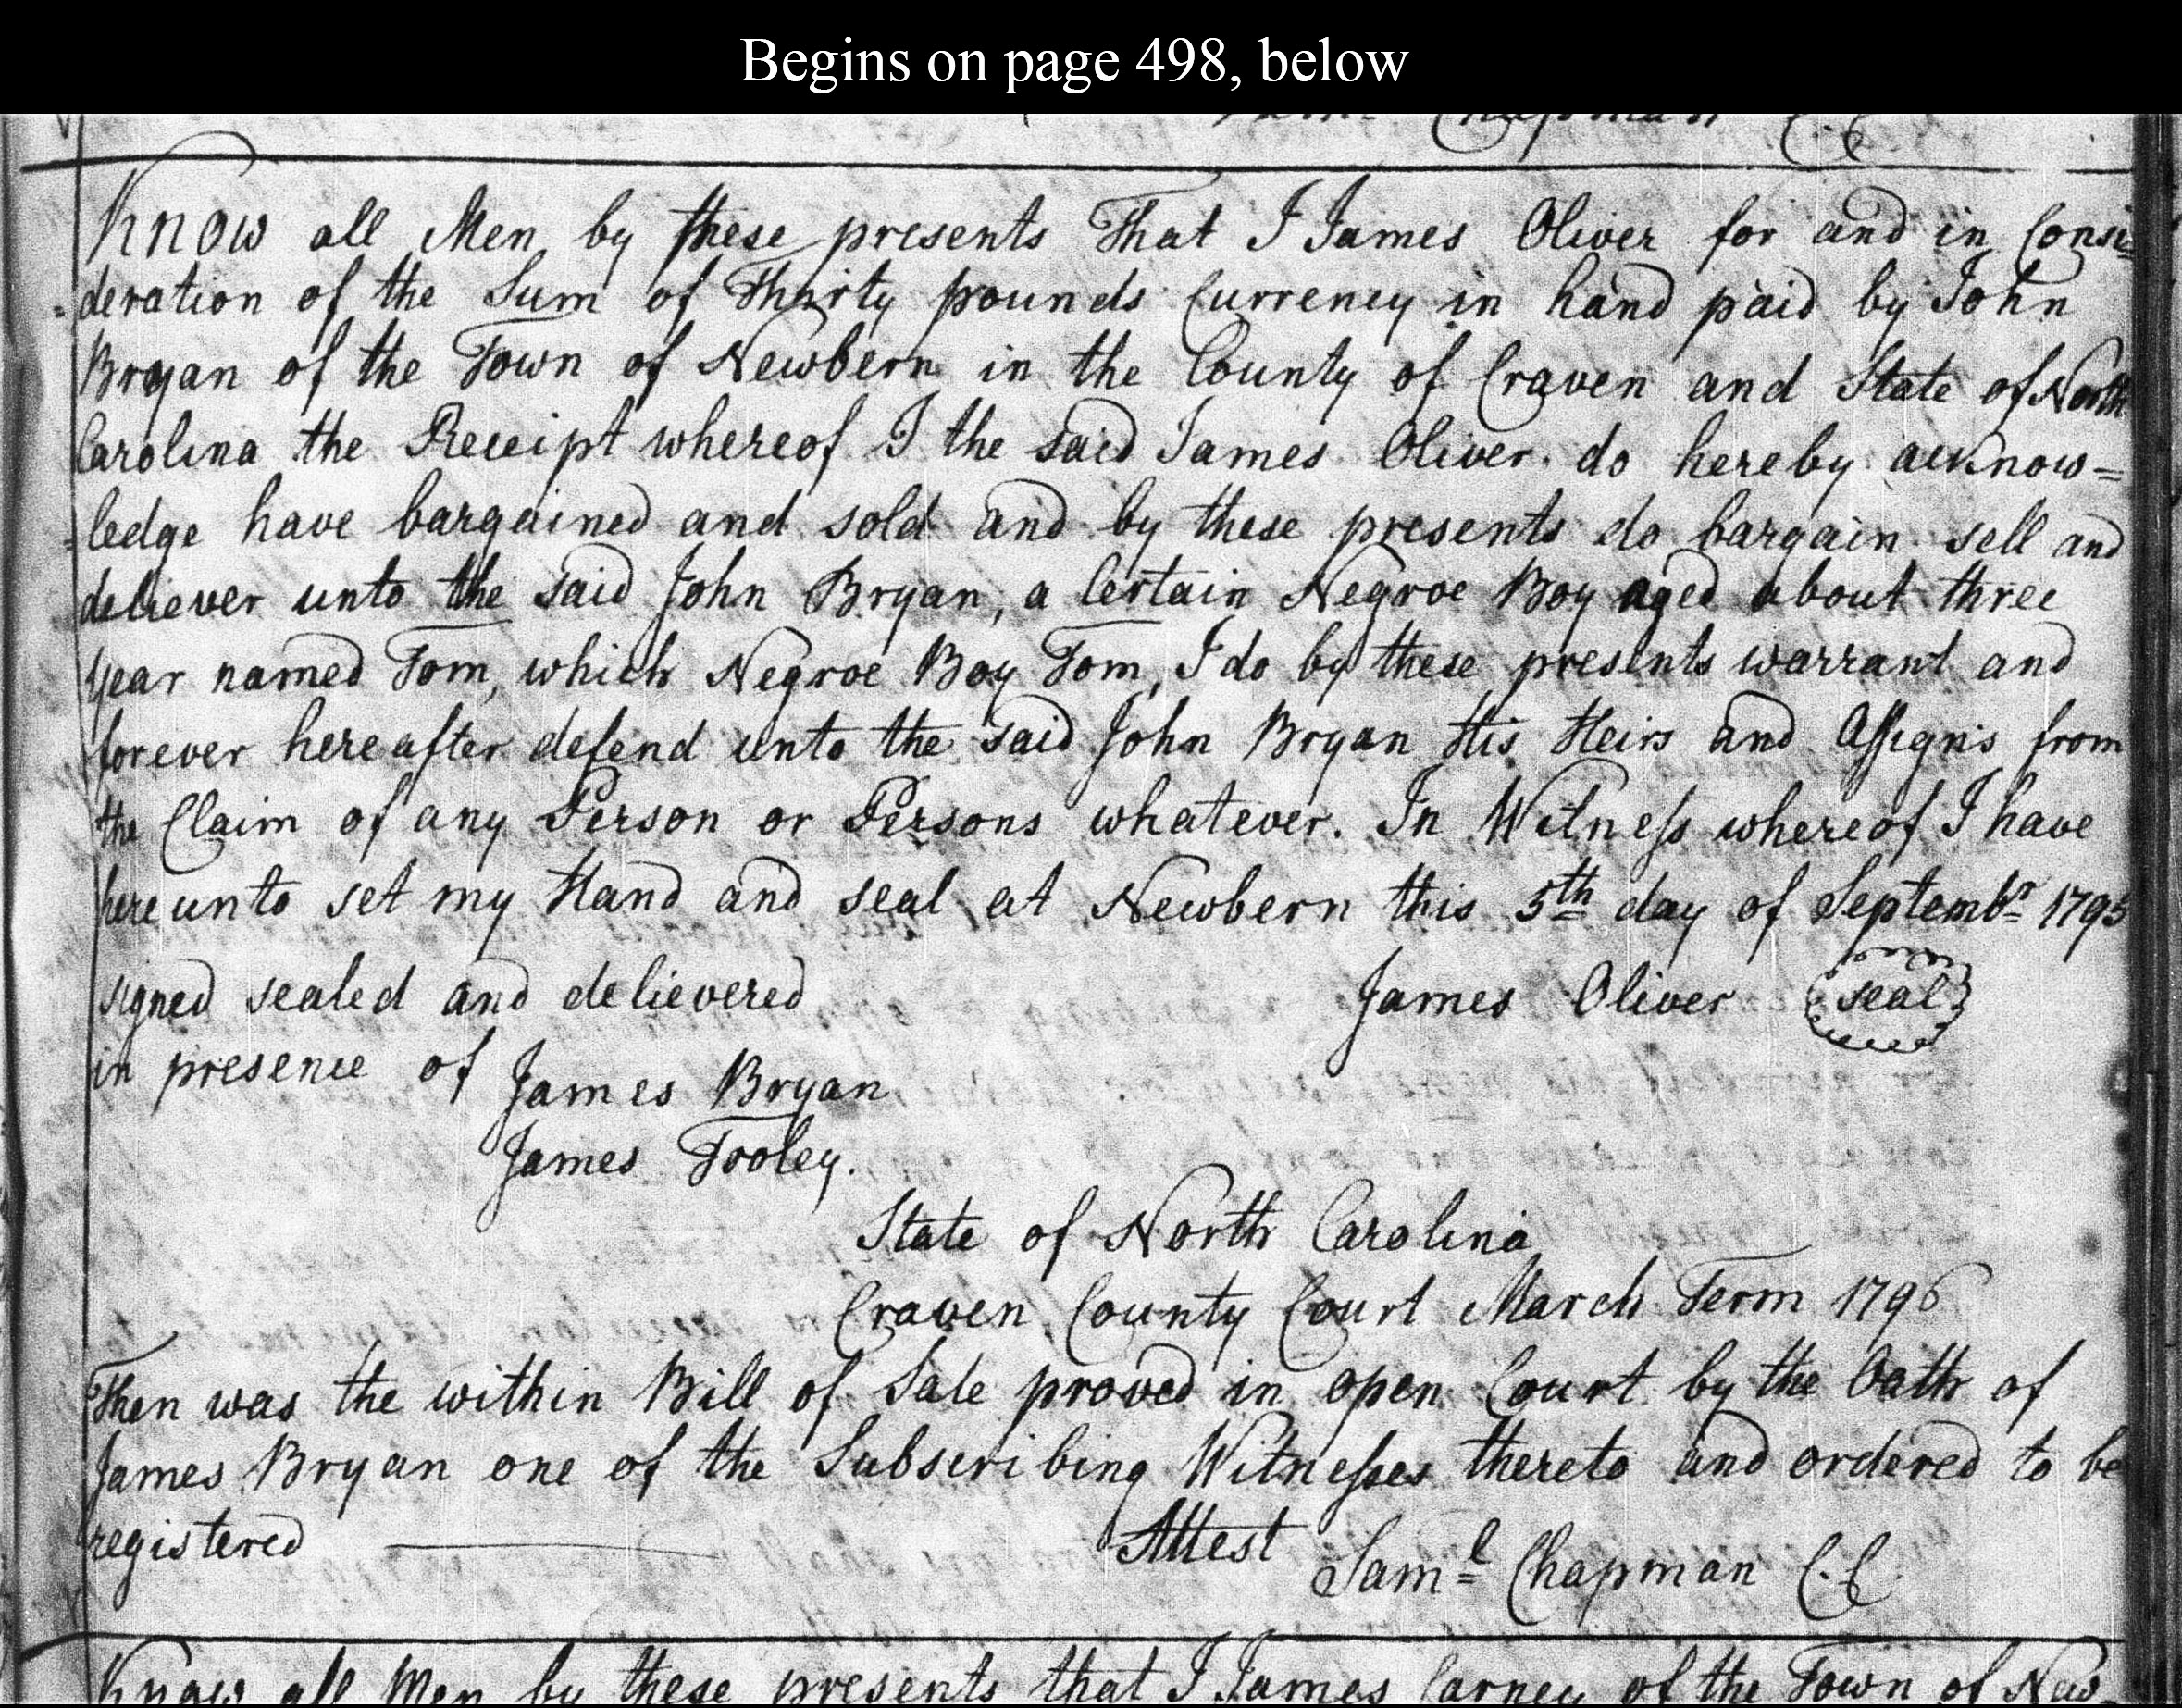 Begins on page 498, below
Chapman C.C
Know all Men by these presents That I James Oliver for and in Consi=
=deration of the Sum of Thirty pounds Currency in hand paid by John
Bryan of the Town of Newbern in the County of Craven and State of North
Carolina the Receipt whereof I the said James Oliver do hereby acknow=
=ledge have bargained and sold and by these presents do bargain sell and
deliever unto the said John Bryan, a Certain Negroe Boy aged about three
year named Tom, which Negroe Boy Tom, I do by these presents warrant and
forever hereafter defend unto the said John Bryan His Heirs and Assigns from
the Claim of any Person or Persons whatever. In Witness whereof I have
hereunto set my Hand and seal at Newbern this 5th day of Septembr 1795
signed sealed and delievered James Oliver seal
in presence of James Bryan
James Tooley.
State of North Carolina
Craven County Court March Term 1796
Then was the within Bill of Sale proved in open Court by the Oath of
James Bryan one of the Subscribing Witnesses thereto and ordered to be
registered Attest Saml Chapman C.C.
Know all Men by these presents that I James Carney of the Town of New